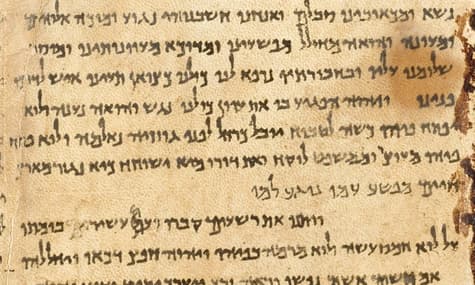 נשא ומכאובינו סבלם ואנחנו חשבנוהי נגוע ומוכה אלוהים
ומעונה והואה מחולל מפשעינו ומדוכא מעוונותינו ומוסר
שלומנו עליו ובחבורתיו נרפא לנו כולנו כצואן תעינו איש לדרכו
פנינו ויהוה הפגיע בו את עוון כולנו נגש והואה נענה ולוא
יפתח פיהו כשה לטבוח יובל כרחל לפני גוזזיה נאלמה ולוא פתח
פיהו מעוצר וממשפט לוקח ואת דורו מיא ישוחח כיא נגזר מארץ
חיים מפשע עמו נוגע למו
ויתנו את רשעים קברו ועם עשיר בומתו
על לוא חמס עשה ולוא מרמה בפיהו ויהוה חפץ דכאו ויחללהו
אם תשים אשם נפשו